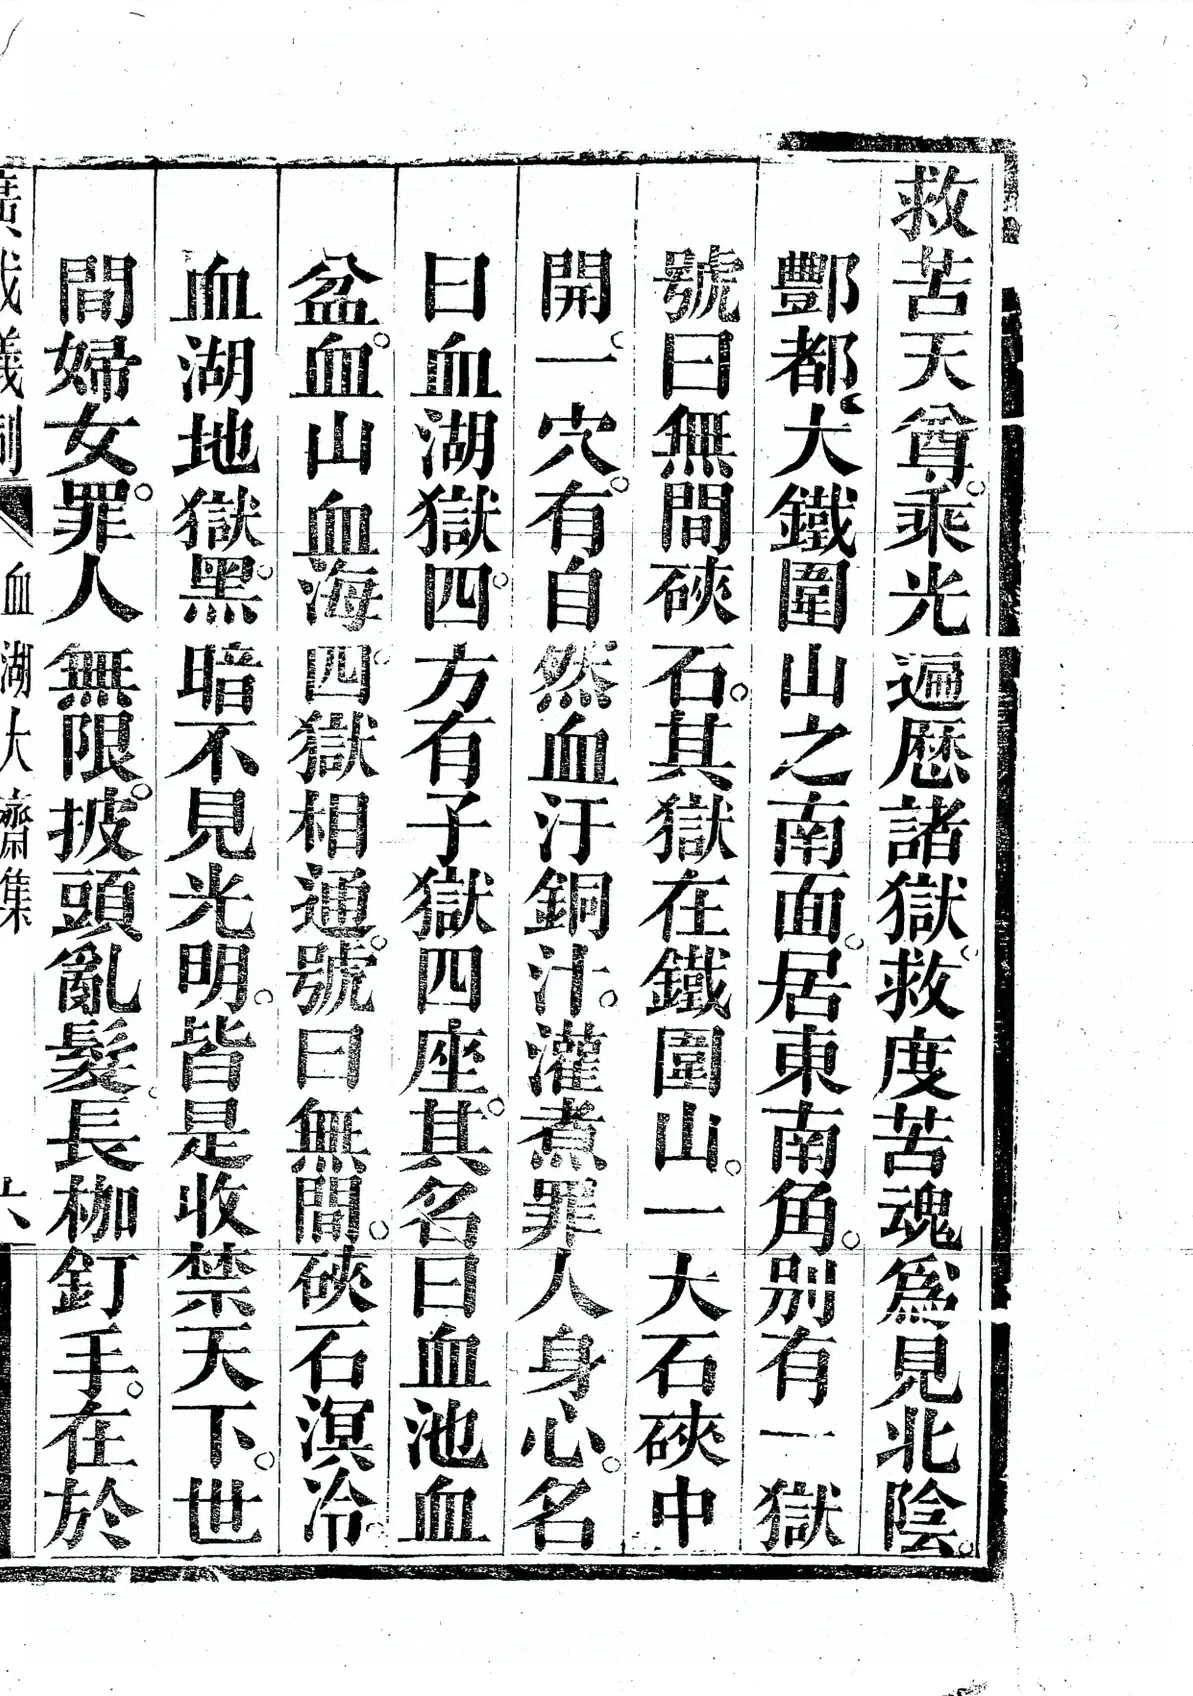 救苦天尊。乘光遍歷諸獄。救度苦魂爲見北陰。
酆都、大鐵圍山之南面。居東南角。別有一獄
號曰無間硤石。其獄在鐵圍山。一大石硤中
開。一穴。有自然血汙銅汁。灌煮罪人身心。名
曰血湖獄。四方有子獄四座。其名曰血池血
盆。血山血海。四獄相通。號曰無間。硤石溟冷。
血湖地獄。黑暗不見光明。皆是收禁天下。世
間婦女。罪人無限。披頭亂髮。長枷釘手。在於
廣成儀制 血湖大齋集 六